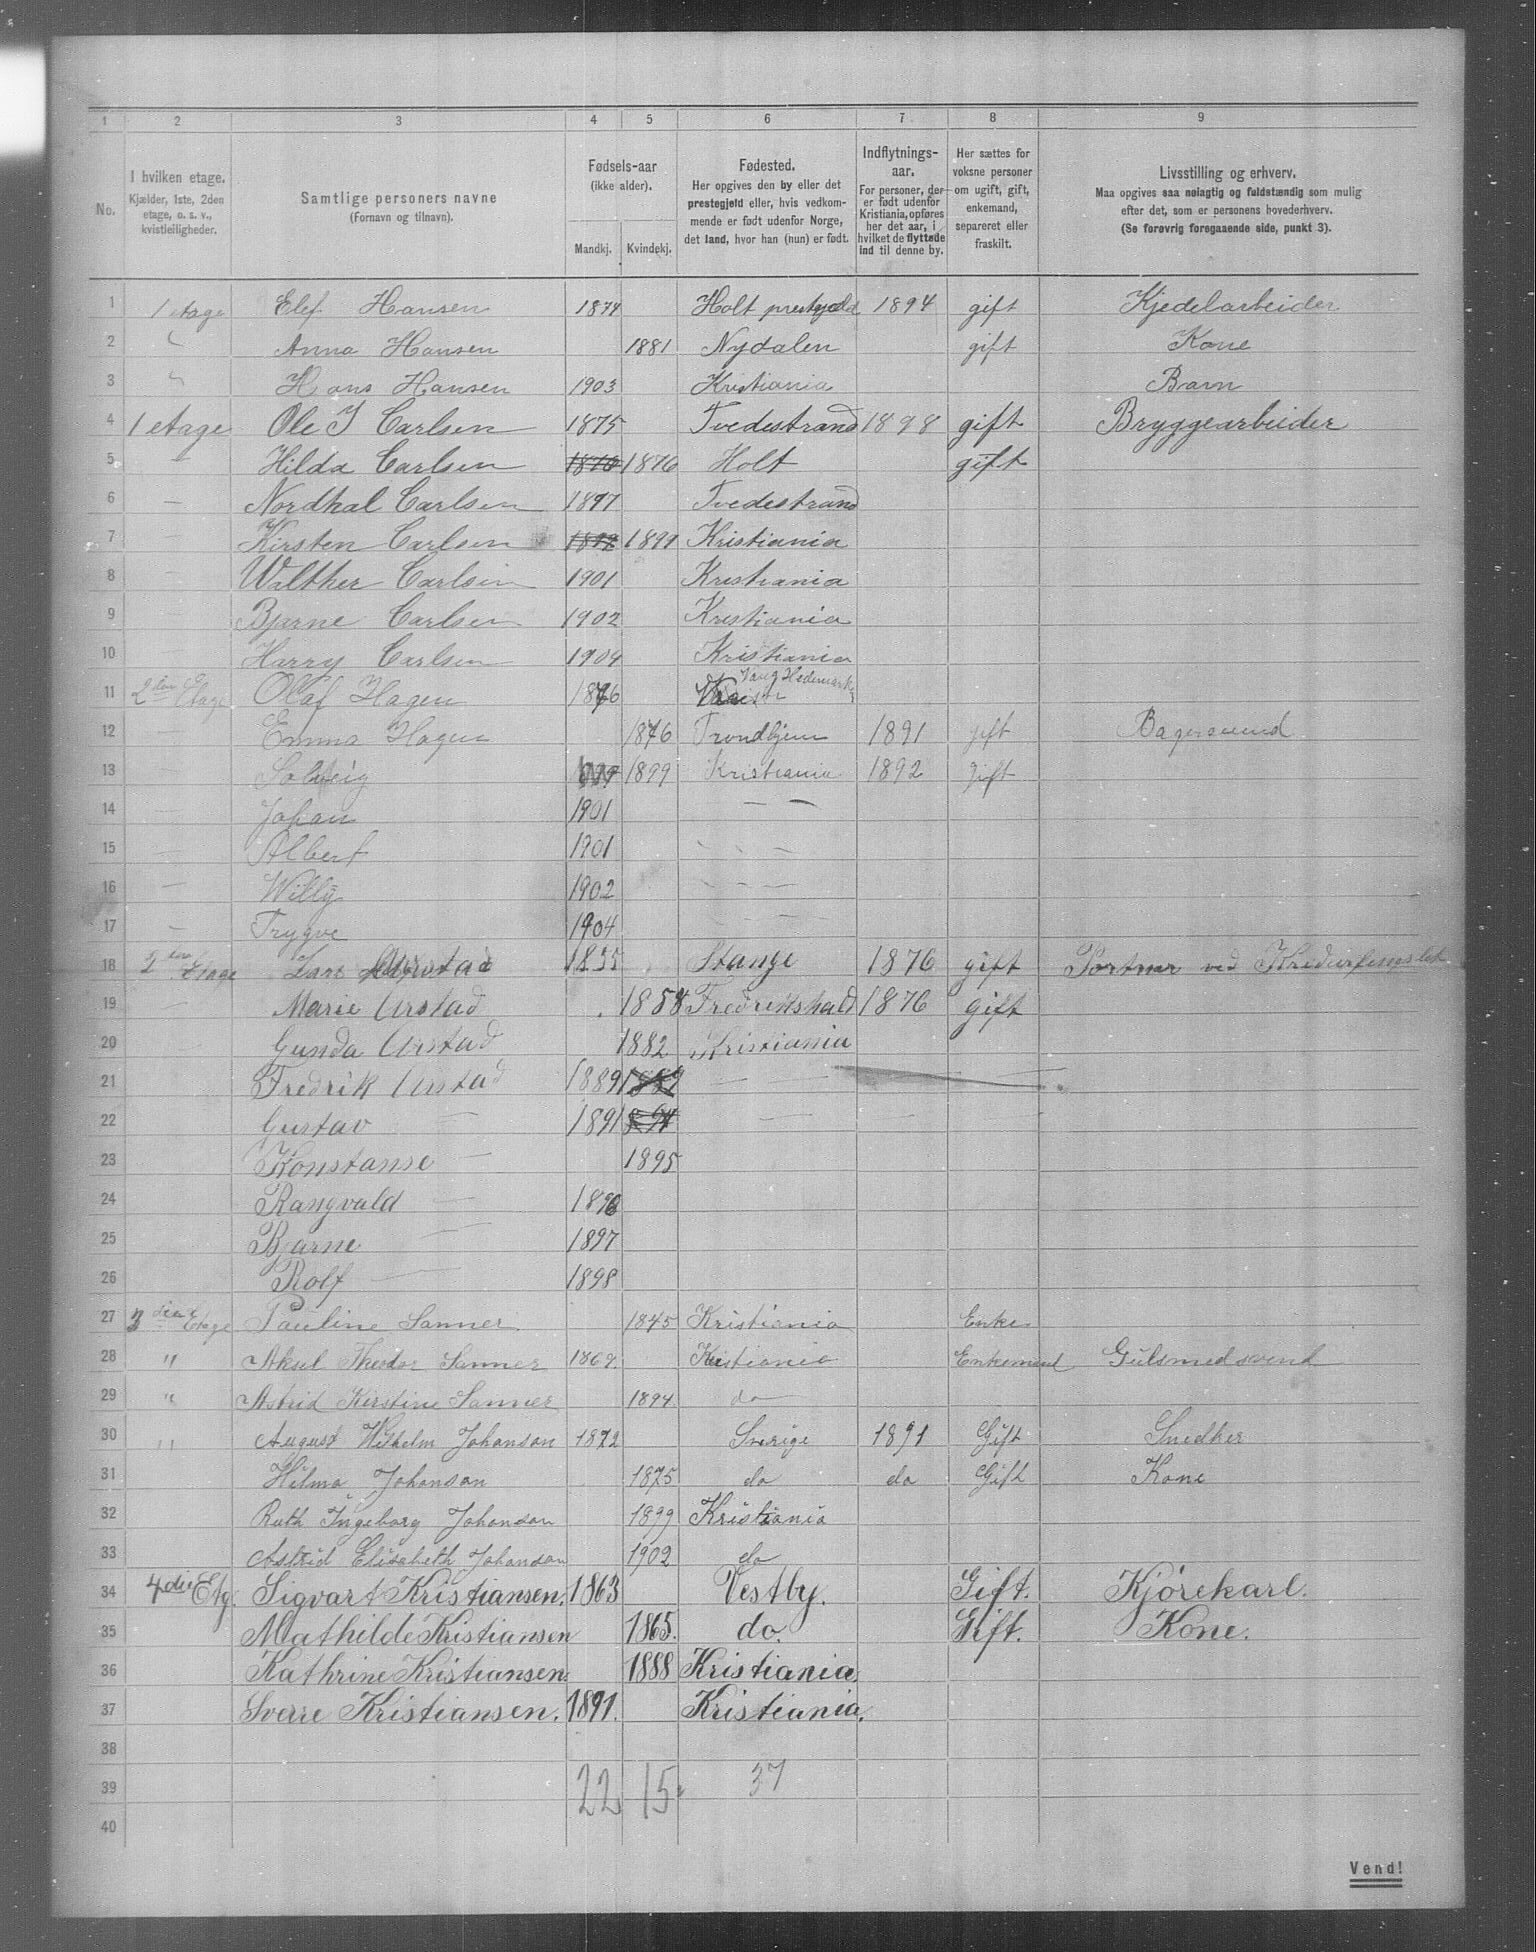 1 2 3 4 5 6 7 8 9
No.
I hvilken etage.
Kjælder, 1ste, 2den
etage, o. s. v.,
kvistleiligheder.
Samtlige personers navne
(Fornavn og tilnavn).
Fødsels-aar
(ikke alder).
Mandkj. Kvindekj.
Fødested.
Her opgives den by eller det
prestegjeld eller, hvis vedkom-
mende er født udenfor Norge,
det land, hvor han (hun) er født.
Indflytnings-
aar.
For personer, der
er født udenfor
Kristiania, opføres
her det aar, i
hvilket de flyttede
ind til denne by.
Her sættes for
voksne personer
om ugift, gift,
enkemand,
separeret eller
fraskilt.
Livsstilling og erhverv.
Maa opgives saa nøiagtig og fuldstændig som mulig
efter det, som er personens hovederhverv.
(Se forøvrig foregaaende side, punkt 3).
1 1 etage Elef Hansen 1874 Holt prestgjeld 1894 gift Kjedelarbeider
2 " Anna Hansen 1881 Nydalen gift Kone
3 " Hans Hansen 1903 Kristiania Barn
4 1 etage Ole J Carlsen 1875 Tvedestrand 1898 gift Bryggearbeider
5 — Hilda Carlsen 1876 1876 Holt gift
6 — Nordhal Carlsen 1897 Tvedestrand
7 — Kirsten Carlsen 1899 1899 Kristiania
8 — Walther Carlsen 1901 Kristiania
9 — Bjarne Carlsen 1902 Kristiania
10 — Harry Carlsen 1904 Kristiania
11 2den Etage Olaf Hagen 1876 Vang Hedemarken
12 — Emma Hagen 1876 Trondhjem 1891 gift Bagersvend
13 — Solveig 1899 Kristiania 1892 gift
14 — Johan 1901 — —
15 — Albert 1901 — —
16 — Willy 1902 — —
17 — Trygve 1904 — —
18 2den Etage Lars Urstad 1855 Stange 1876 gift Portner ved
19 — Marie Urstad 1858 Fredrikshald 1876 gift
20 — Gunda Urstad 1882 Kristiania
21 Fredrik Urstad 1889 1889 — —
22 Gustav — 1891 — —
23 Konstanse — 1895
24 Rangvald — 1896
25 Bjarne — 1897
26 Rolf — 1898
27 3die Etage Pauline Sanner. 1845 Kristiania Enke
28 " Aksel Theodor Sanner 1869. Kristiania Enkemand Gulsmedsvend
29 " Astrid Kirstine Sanner 1894. do
30 " August Wilhelm Johanson 1872 Sverige 1891 Gift Snedker
31 Hilma Johanson 1875 do do Gift Kone
32 Ruth Ingeborg Johanson 1899 Kristiania
33 Astrid Elisabeth Johanson 1902 do
34 4die Etg. Sigvart Kristiansen. 1863 Vestby. Gift. Kjørekarl.
35 Mathilde Kristiansen 1865. do. Gift. Kone.
36 Kathrine Kristiansen. 1888 Kristiania.
37 Sverre Kristiansen. 1891. Kristiania.
38
39 22 15 37
40
Vend!